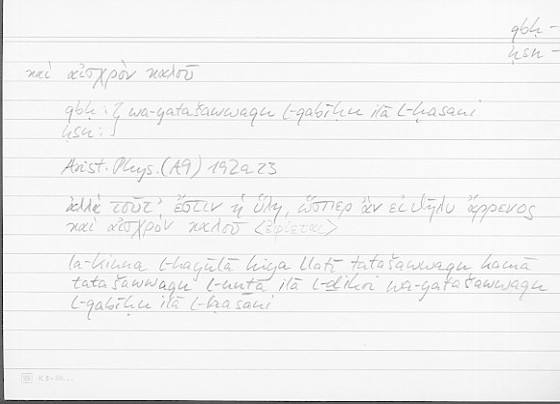 qbḥ -
ḥsn -
καὶ αἰσχρὸν καλοῦ
qbḥ : } wa-yatašawwaqu l-qabīḥu ilā l-ḥasani
ḥsn : }
Arist. Phys. (A9) 192a23
ἀλλὰ τοῦτ' ἔστιν ἡ ὕλη, ὥσπερ ἂν εἰ θῆλυ ἄρρενος
καὶ αἰσχρὸν καλοῦ <ἐφίεται>
la-kinna l-hayūlā hiya llatī tatašawwaqu kamā
tatašawwaqu l-unṯā ilā l-ḏikri wa-yatašawwaqu
l-qabīḥu ilā l-ḥasani